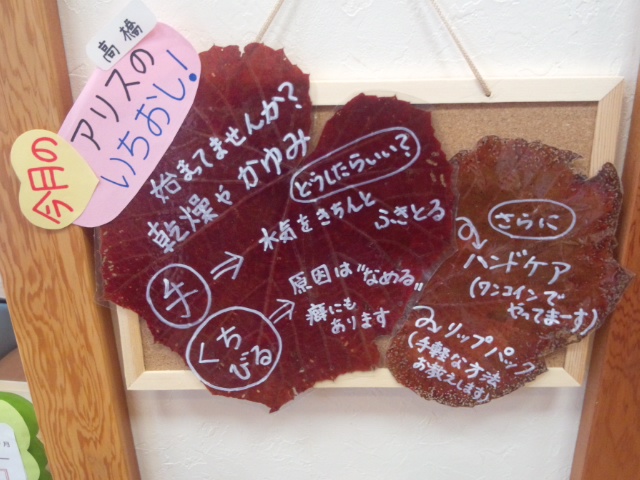 高橋
今月の
アリスの
いちおし!
始まってませんか?
乾燥やかゆみ
どうしたらいい?
手 ⇒ 水気をきちんと
ふきとる
くち
びる
⇒ 原因は"なめる"
癖にも
あります
さらに
ハンドケア
(ワンコインで
やってまーす)
リップパック
(手軽な方法
お教えします)